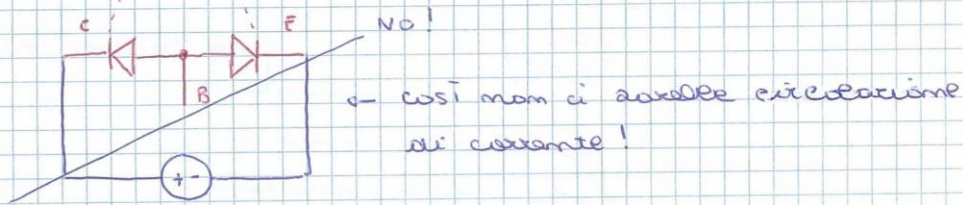 C E NO!
B ← così non ci sarebbe circolazione
di corrente!
+ -